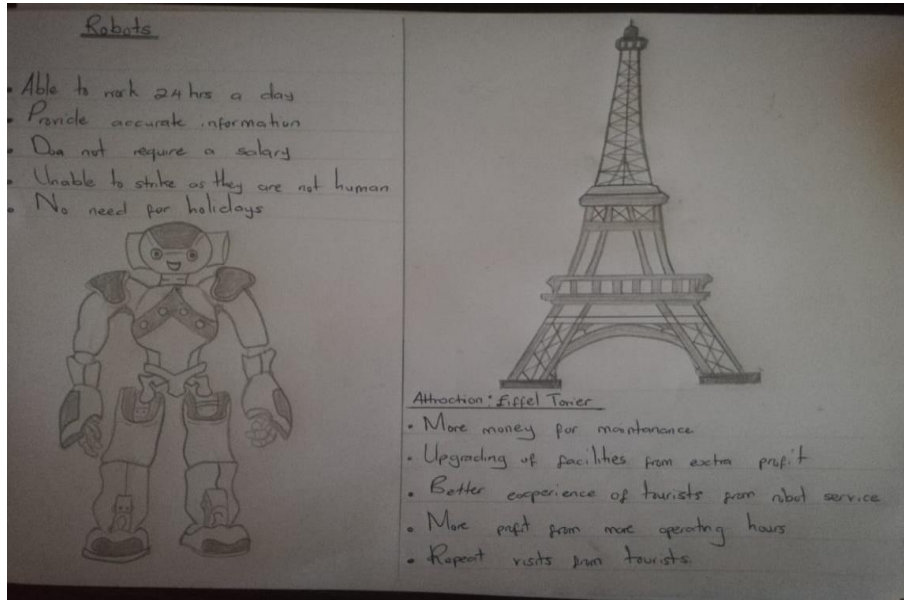 Robots
• Able to work 24 hrs a day
• Provide accurate information
• Doa not require a salary
• Unable to strike as they are not human
• No need for holidays
Attraction: Eiffel Tower
• More money for maintanance
• Upgrading of facilities from extra profit
• Better experience of tourists from robot service
• More profit from more operating hours
• Repeat visits from tourists.